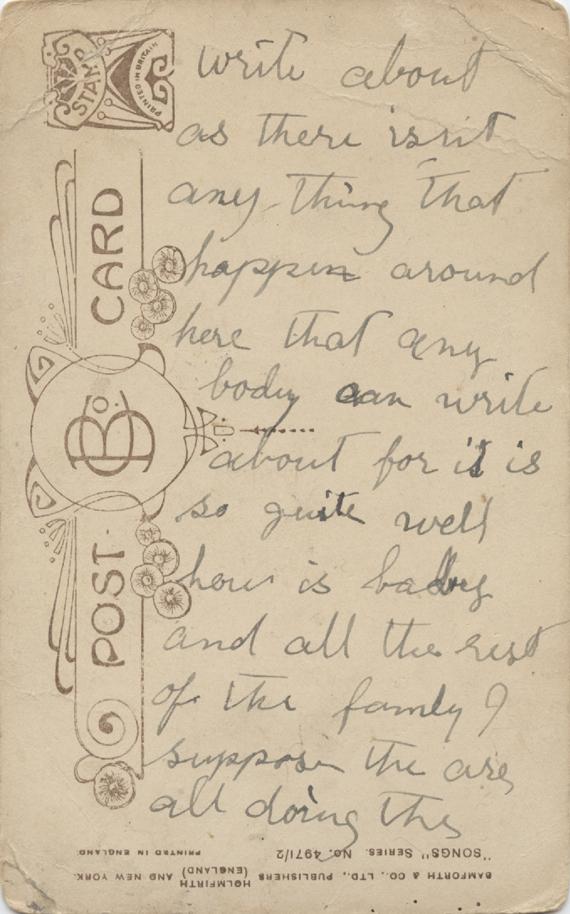 STAMP
PRINTED IN BRITAIN
POST CARD
B Co.
write about
as there isn't
any thing that
happen around
here that any
body can write
about for it is
so quite well
how is baby
and all the rest
of the family I
suppose the are
all doing the
"SONGS" SERIES. No. 4971/2
PRINTED IN ENGLAND.
BAMFORTH & CO., LTD., PUBLISHERS HOLMFIRTH (ENGLAND) AND NEW YORK.